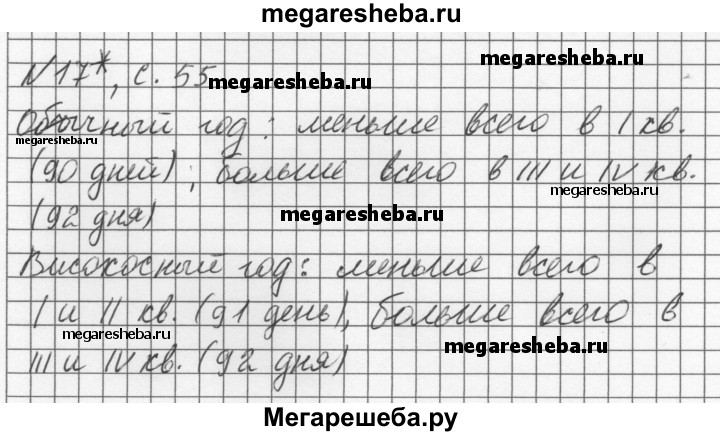 megaresheba.ru
megaresheba.ru
N 17*, с. 55
megaresheba.ru
Обычный год: меньше всего в I кв.
megaresheba.ru
(90 дней); больше всего в III и IV кв.
megaresheba.ru
(92 дня)
megaresheba.ru
Високосный год: меньше всего в
I и II кв. (91 день), больше всего в
megaresheba.ru
megaresheba.ru
III и IV кв. (92 дня)
Мегарешеба.ру